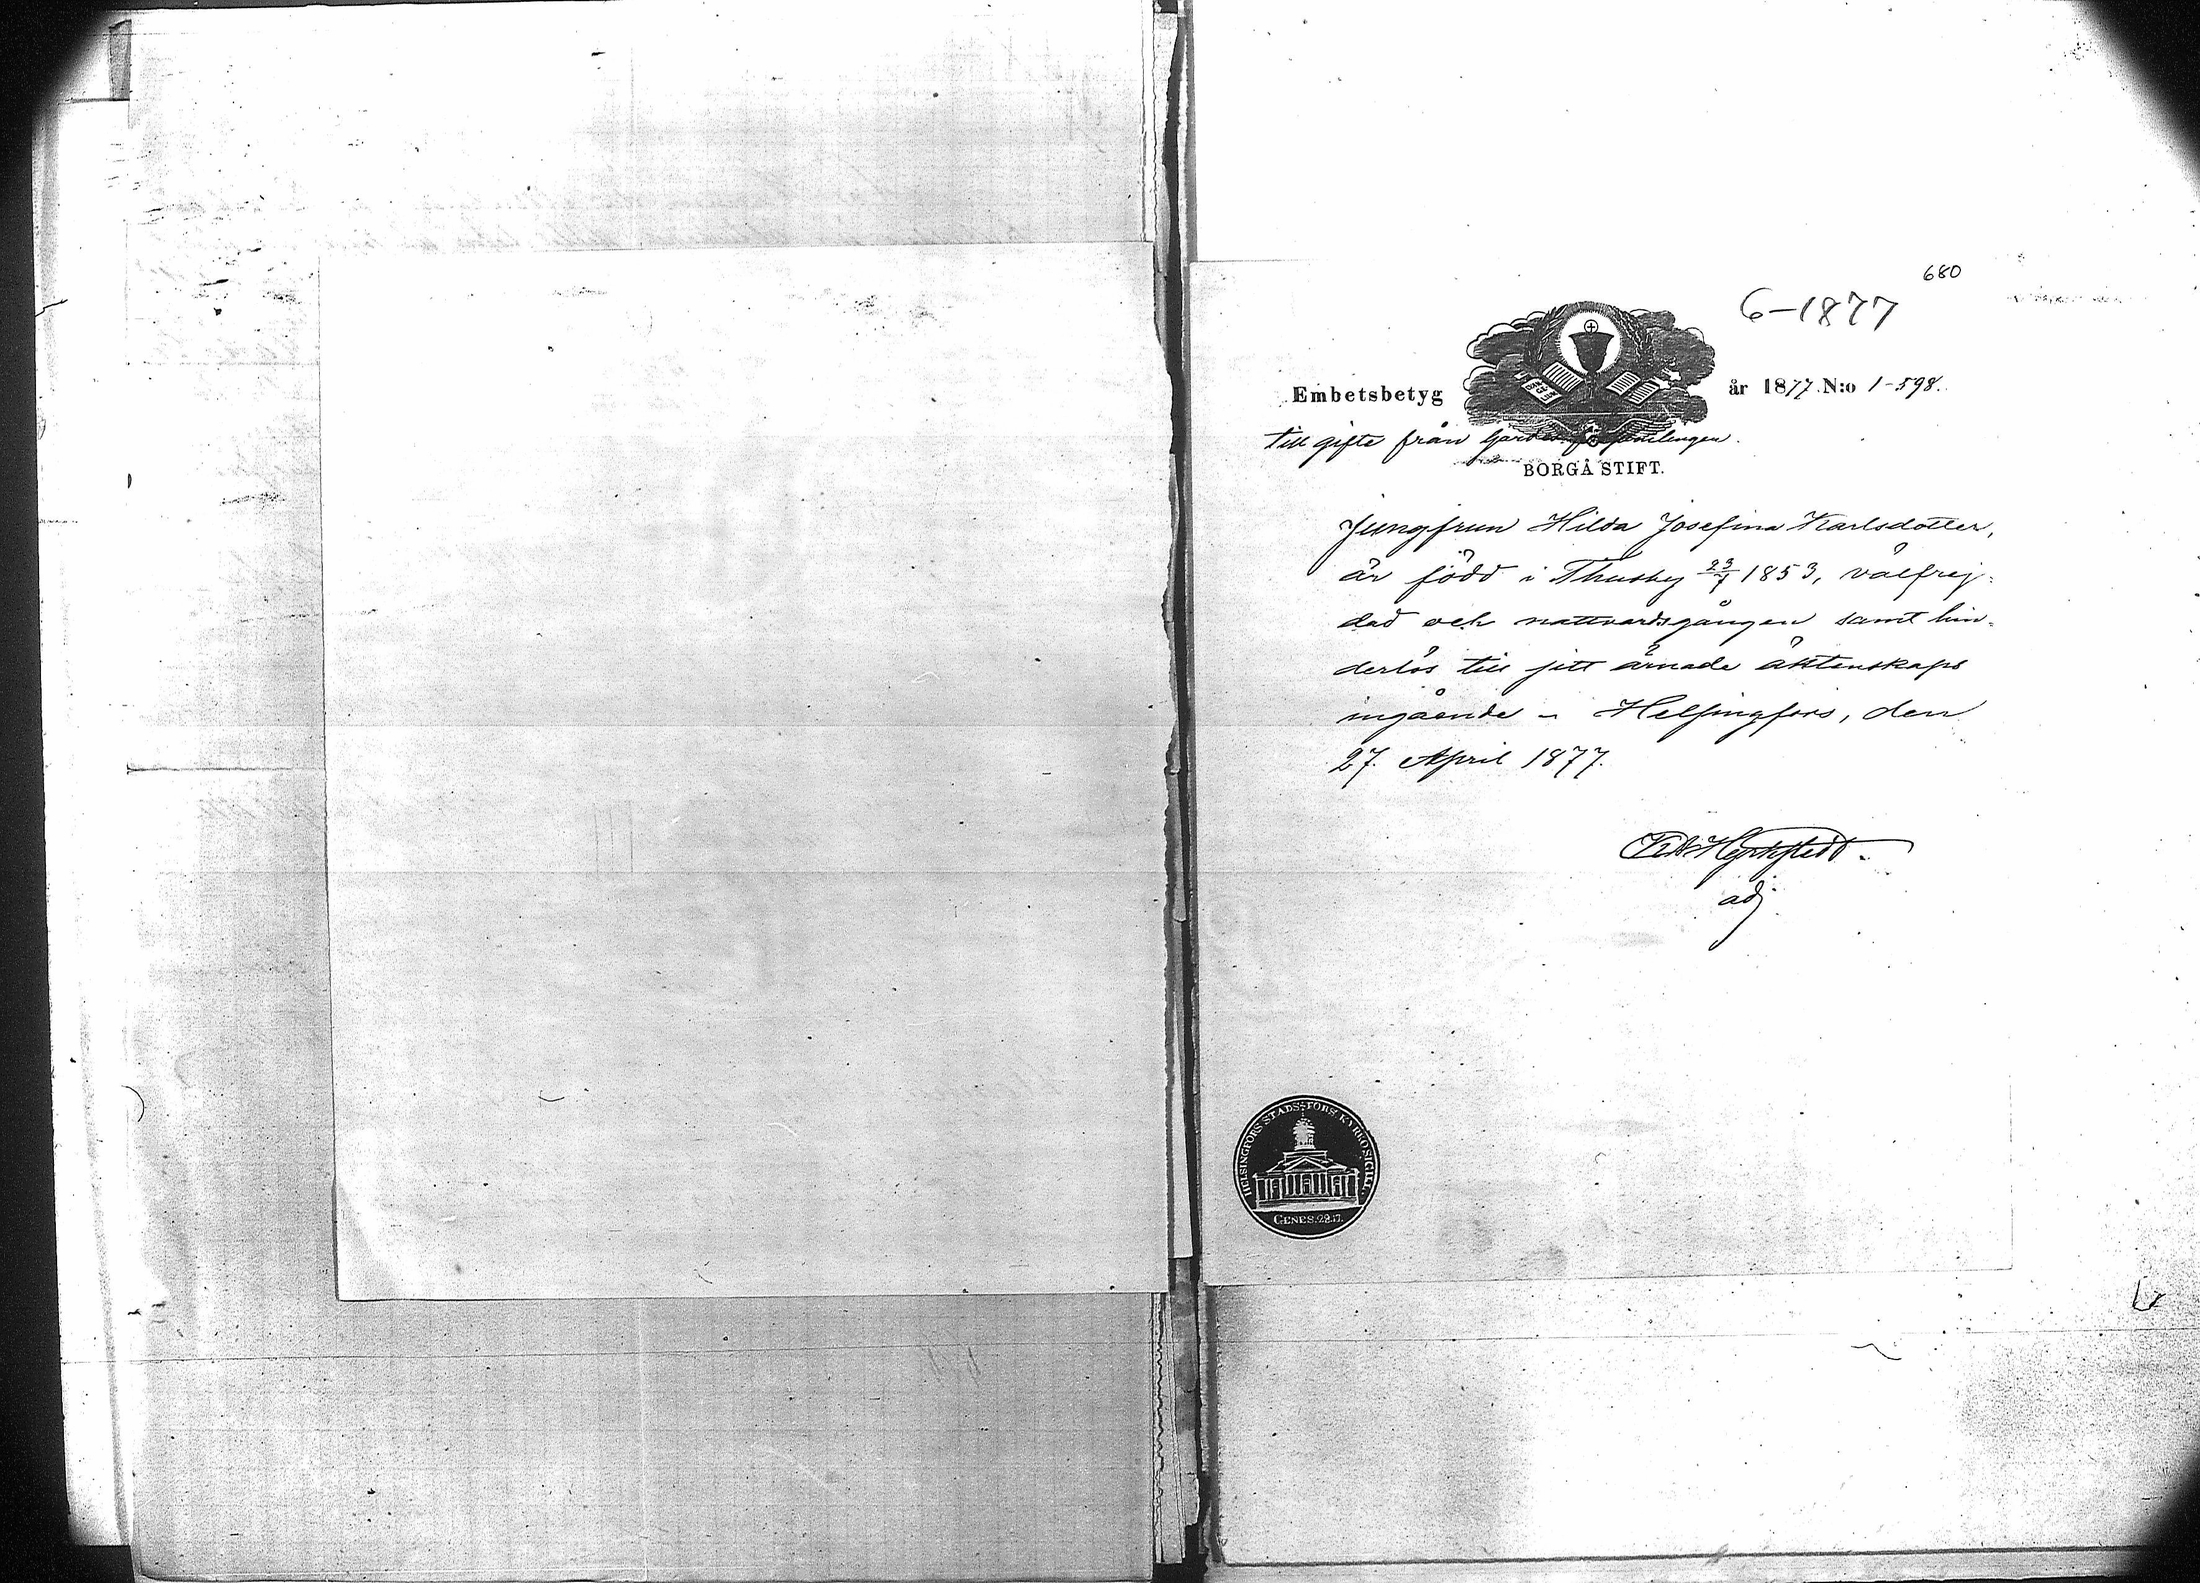 680
6-1877
Embetsbetyg år 1877. N:o 1-598.
till gifte från Gardesförsamlingen.
BORGÅ STIFT.
Jungfrun Hilda Josefina Karlsdotter,
är född i Thusby 23/7 1853, välfrej-
dad och nattvardsgången samt hin-
derlös till sitt ärnade äktenskaps
ingående - Helsingfors, den
27. April 1877.
adj
HELSINGFORS STADS-FÖRS. KYRKOSIGILL.
GENES. 28.17.